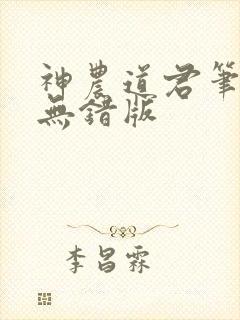 神農道君筆
無錯版
李昌霖